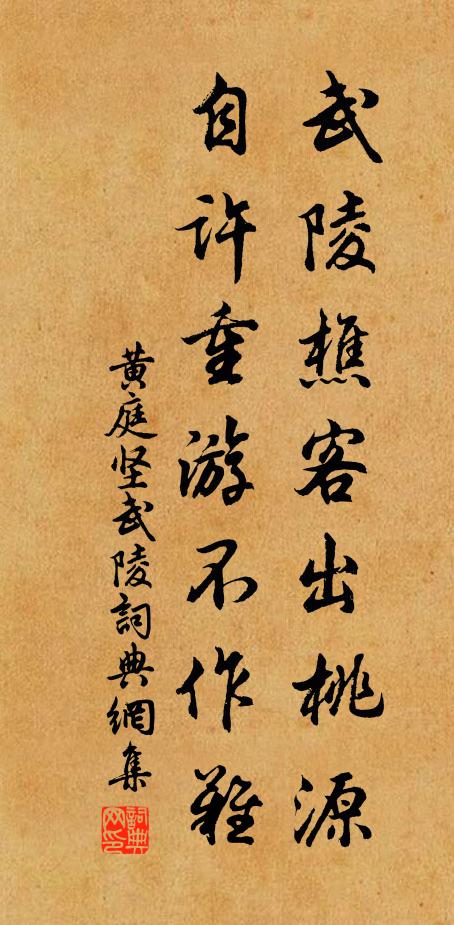 武陵樵客出桃源
自许重游不作难
黄庭坚武陵詞典網集
詞典网印